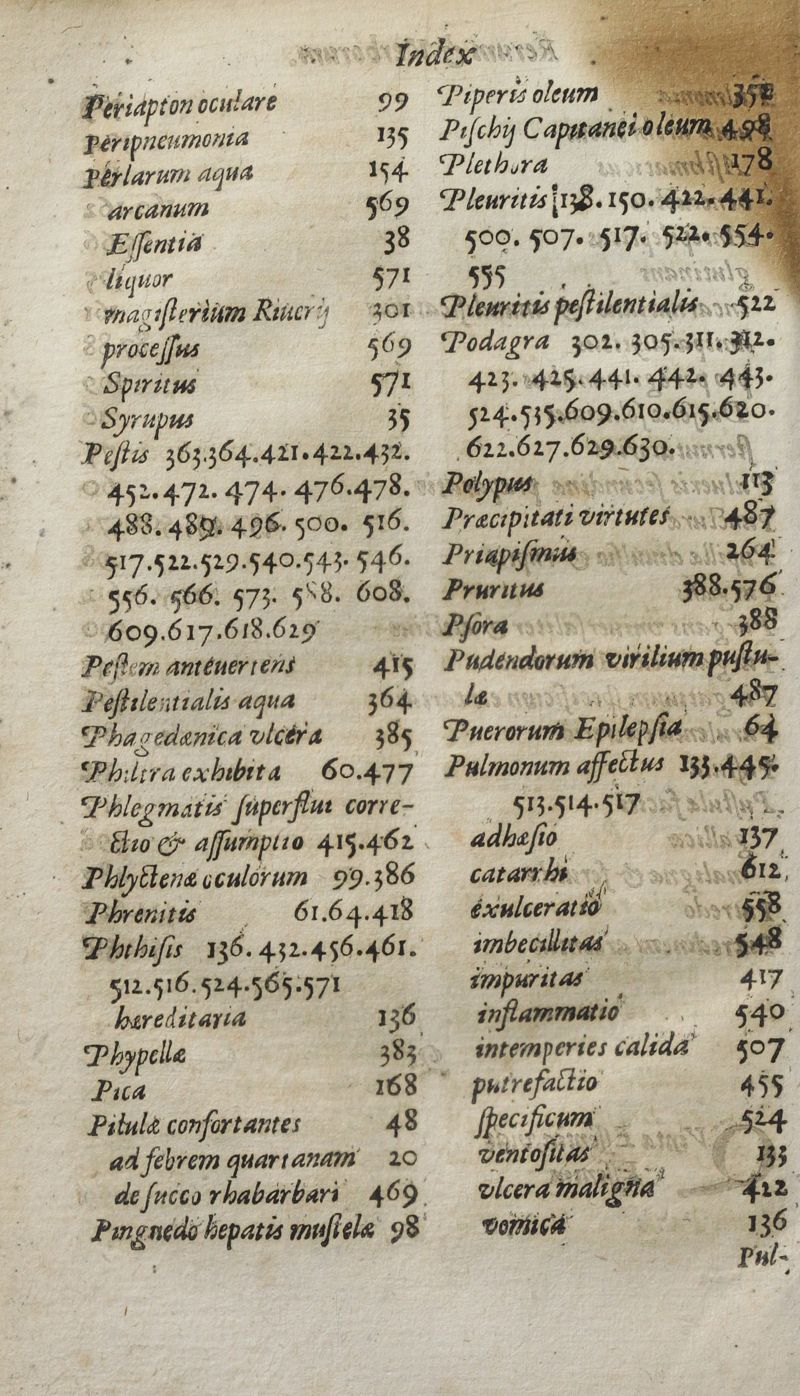 Index
Periapton oculare 99
Peripneumonia 135
Perlarum aqua 154
arcanum 569
Eſſentia 38
liquor 571
magiſterium Riuerij 301
proceſſus 569
Spiritus 571
Syrupus 35
Peſtis 363.364.421.422.432.
452.472. 474. 476.478.
488.489. 496. 500. 516.
517.522.529.540.543. 546.
556. 566. 573. 588. 608.
609.617.618.629
Peſtem antèuertens 415
Peſtilentialis aqua 364
Phagedænica vlcera 385
Philtra exhibita 60.477
Phlegmatis ſuperflui corre-
ctio & aſſumptio 415.462
Phlyctenæ oculorum 99.386
Phrenitis 61.64.418
Phthiſis 136. 432.456.461.
512.516.524.565.571
hæreditaria 136
Phypellæ 383
Pica 168
Pilulæ confortantes 48
ad febrem quartanam 20
de ſucco rhabarbari 469
Pingnedo hepatis muſtelæ 98
Piperis oleum 358
Piſchij Capitanei oleum 498
Plethora 178
Pleuritis 138. 150. 422. 441.
500. 507. 517. 522. 554.
555
Pleuritis peſtilentialis 522
Podagra 302. 305. 311. 312.
423. 425. 441. 442. 443.
524.535.609.610.615.620.
622.627.629.630.
Polypus 113
Præcipitati virtutes 487
Priapiſmus 264
Pruritus 388.576
Pſora 388
Pudendorum virilium puſtu-
læ 487
Puerorum Epilepſia 64
Pulmonum affectus 133.445.
513.514.517
adhæſio 137
catarrhi 612,
exulceratio 558
imbecillitas 548
impuritas 417
inflammatio 540
intemperies calida 507
putrefactio 455
ſpecificum 524
ventoſitas 133
vlcera maligna 412
vomica 136
Pul-